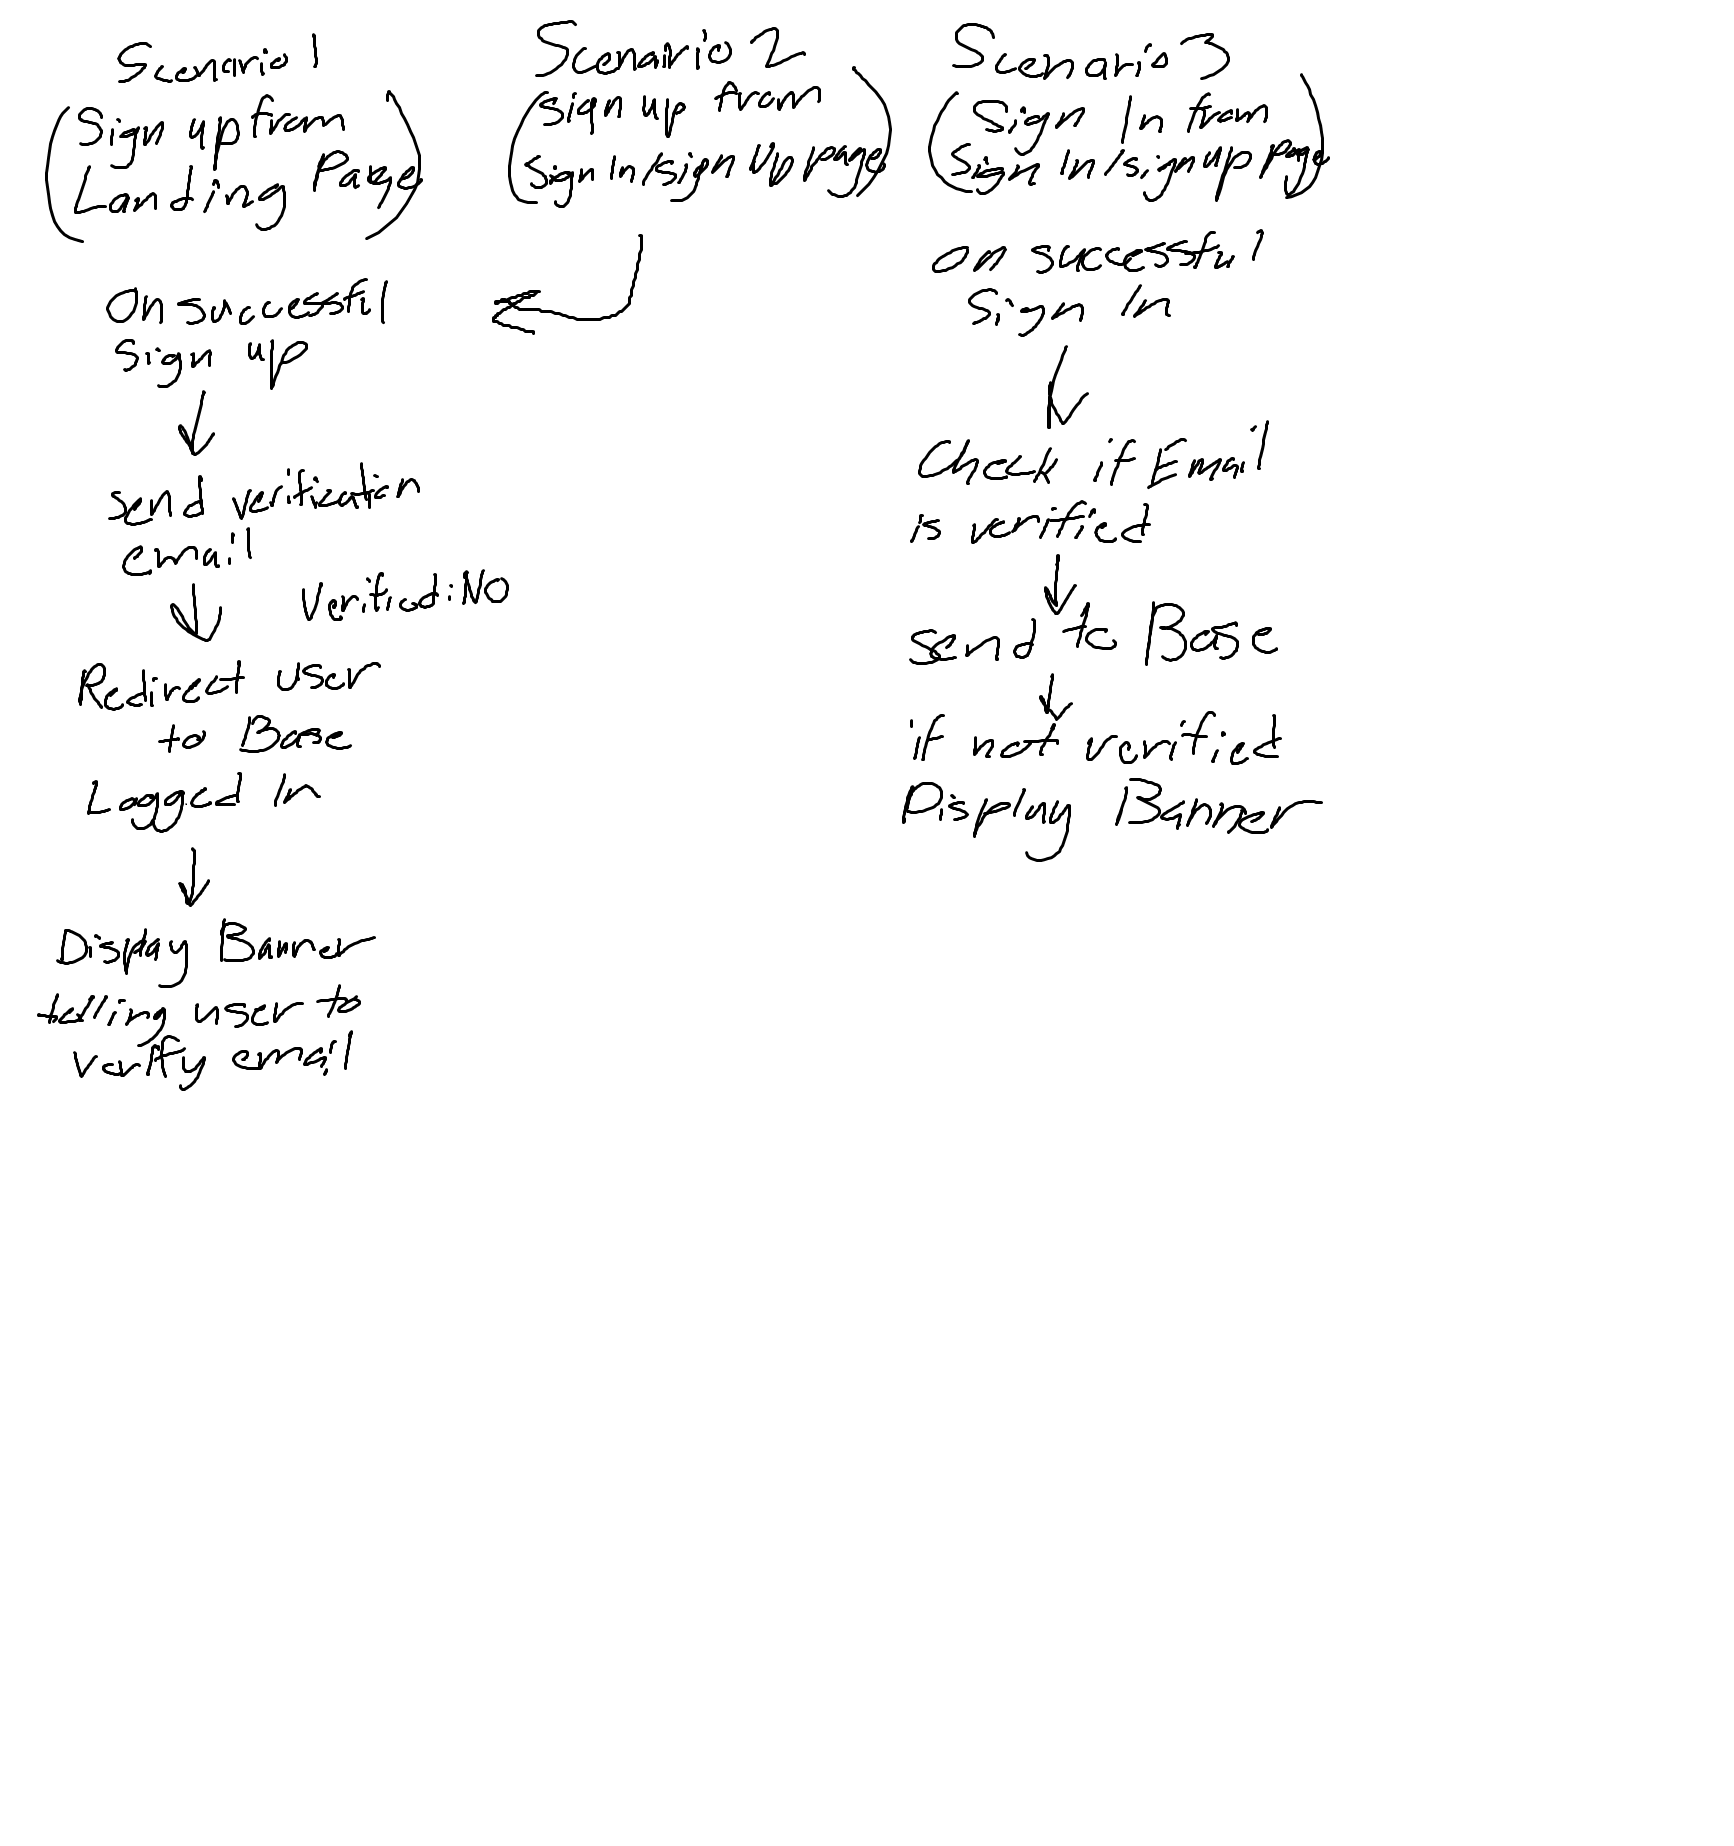 Scenario 1
(Sign up from
Landing Page)
On successful
Sign up
send verification
email
Verified: NO
Redirect user
to Base
Logged In
Display Banner
telling user to
verify email
Scenairio 2
(sign up from
Sign In/sign Up page)
Scenario 3
(Sign In from
Sign In/signup page)
on successful
Sign In
Check if Email
is verified
send to Base
if not verified
Display Banner